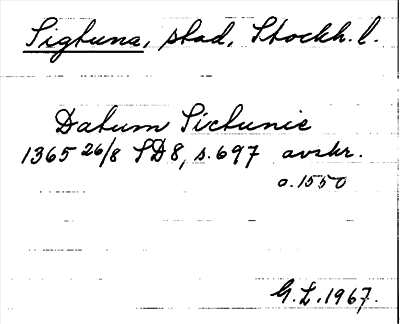 Sigtuna, stad, Stockh. l.
Datum Sictunie
1365 26/8 SD8, s. 697 avskr.
o. 1550
G. L. 1967.